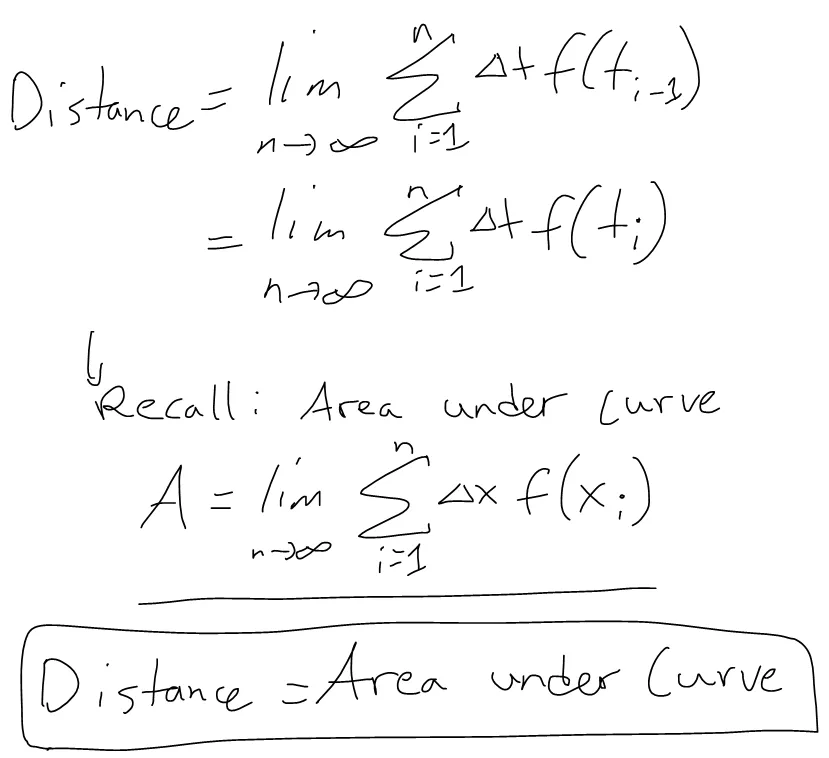 Distance = lim n→∞ n Σ i=1 Δt f(t_{i-1})
= lim n→∞ n Σ i=1 Δt f(t_i)
Recall: Area under curve
A = lim n→∞ n Σ i=1 Δx f(x_i)
Distance = Area under Curve